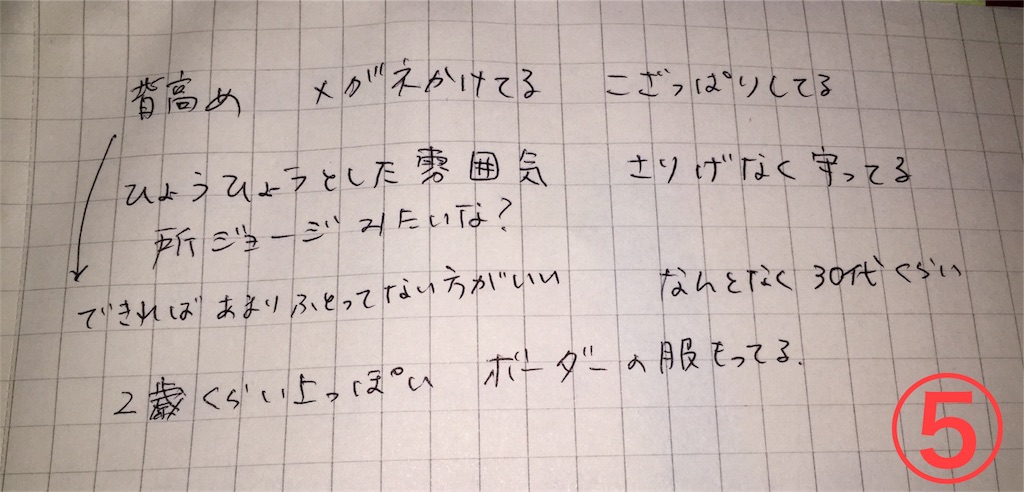 背高め メガネかけてる こざっぱりしてる
ひょうひょうとした雰囲気 さりげなく守ってる
所ジョージみたいな?
できればあまりふとってない方がいい なんとなく30代くらい
2歳くらい上っぽい ボーダーの服もってる.
5